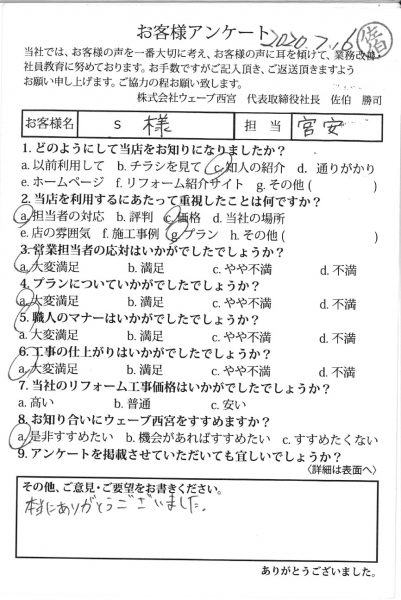 お客様アンケート 2020.7.16 佐伯
当社では、お客様の声を一番大切に考え、お客様の声に耳を傾けて、業務改善
社員教育に努めております。お手数ですがご記入頂き、ご返送頂きますよう
お願い申し上げます。ご協力の程お願い致します。
株式会社ウェーブ西宮 代表取締役社長 佐伯 勝司
お客様名 S 様 担当 宮安
1. どのようにして当店をお知りになりましたか?
a. 以前利用して b. チラシを見て c. 知人の紹介 d. 通りがかり
e. ホームページ f. リフォーム紹介サイト g. その他( )
2. 当店を利用するにあたって重視したことは何ですか?
a. 担当者の対応 b. 評判 c. 価格 d. 当社の場所
e. 店の雰囲気 f. 施工事例 g. プラン h. その他( )
3. 営業担当者の応対はいかがでしたでしょうか?
a. 大変満足 b. 満足 c. やや不満 d. 不満
4. プランについていかがでしたでしょうか?
a. 大変満足 b. 満足 c. やや不満 d. 不満
5. 職人のマナーはいかがでしたでしょうか?
a. 大変満足 b. 満足 c. やや不満 d. 不満
6. 工事の仕上がりはいかがでしたでしょうか?
a. 大変満足 b. 満足 c. やや不満 d. 不満
7. 当社のリフォーム工事価格はいかがでしたでしょうか?
a. 高い b. 普通 c. 安い
8. お知り合いにウェーブ西宮をすすめますか?
a. 是非すすめたい b. 機会があればすすめたい c. すすめたくない
9. アンケートを掲載させていただいても宜しいでしょうか?
〈詳細は表面へ〉
その他、ご意見・ご要望をお書きください。
本当にありがとうございました。
ありがとうございました。